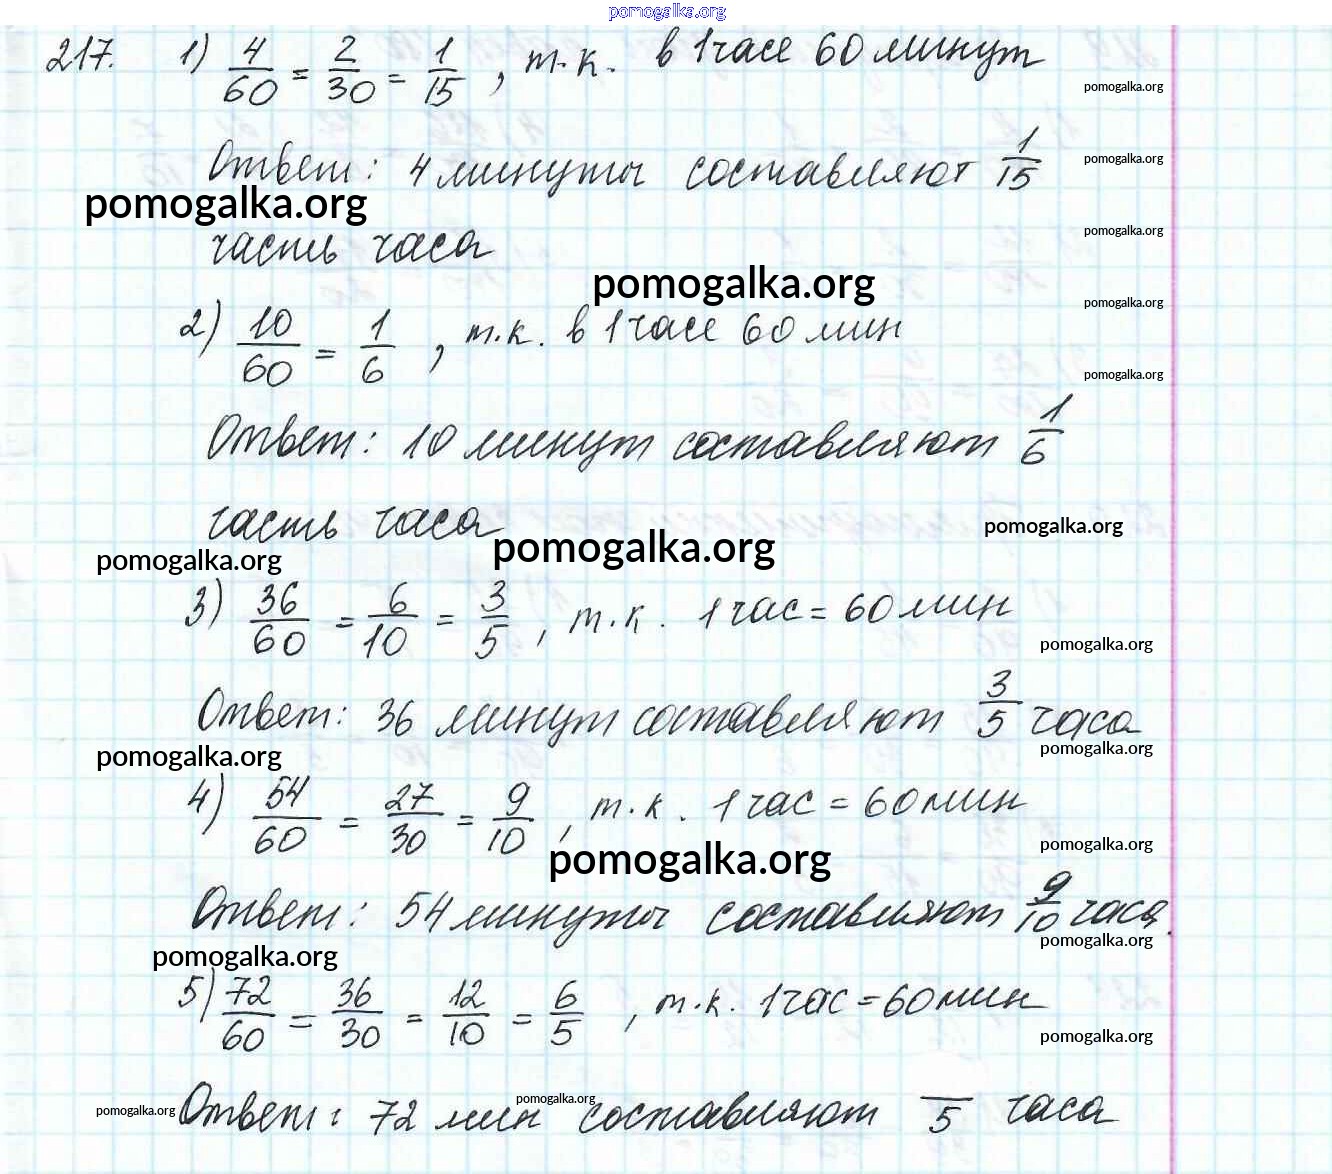 pomogalka.org
217. 1) 4/60 = 2/30 = 1/15, т.к. в 1 часе 60 минут
pomogalka.org
Ответ: 4 минуты составляют 1/15
pomogalka.org
pomogalka.org
часть часа
pomogalka.org
pomogalka.org
2) 10/60 = 1/6, т.к. в 1 часе 60 мин
pomogalka.org
pomogalka.org
Ответ: 10 минут составляют 1/6
часть часа
pomogalka.org
pomogalka.org
pomogalka.org
3) 36/60 = 6/10 = 3/5, т.к. 1 час = 60 мин
pomogalka.org
Ответ: 36 минут составляют 3/5 часа
pomogalka.org
pomogalka.org
4) 54/60 = 27/30 = 9/10, т.к. 1 час = 60 мин
pomogalka.org
pomogalka.org
Ответ: 54 минуты составляют 9/10 часа.
pomogalka.org
pomogalka.org
5) 72/60 = 36/30 = 12/10 = 6/5, т.к. 1 час = 60 мин
pomogalka.org
pomogalka.org
pomogalka.org
Ответ: 72 мин составляют /5 часа